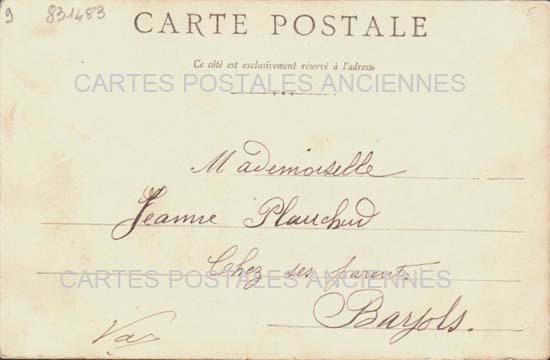 9 831483
CARTE POSTALE
Ce côté est exclusivement réservé à l'adresse
CARTES POSTALES ANCIENNES
Mademoiselle
Jeanne Plauchud
Chez ses parents
CARTES POSTALES ANCIENNES
Barjols.
Var